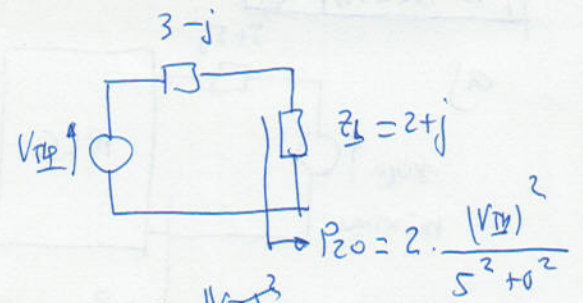 3-j
V_TH
Z_L = 2+j
P_20 = 2 · (V_TH)² / 5²+0²